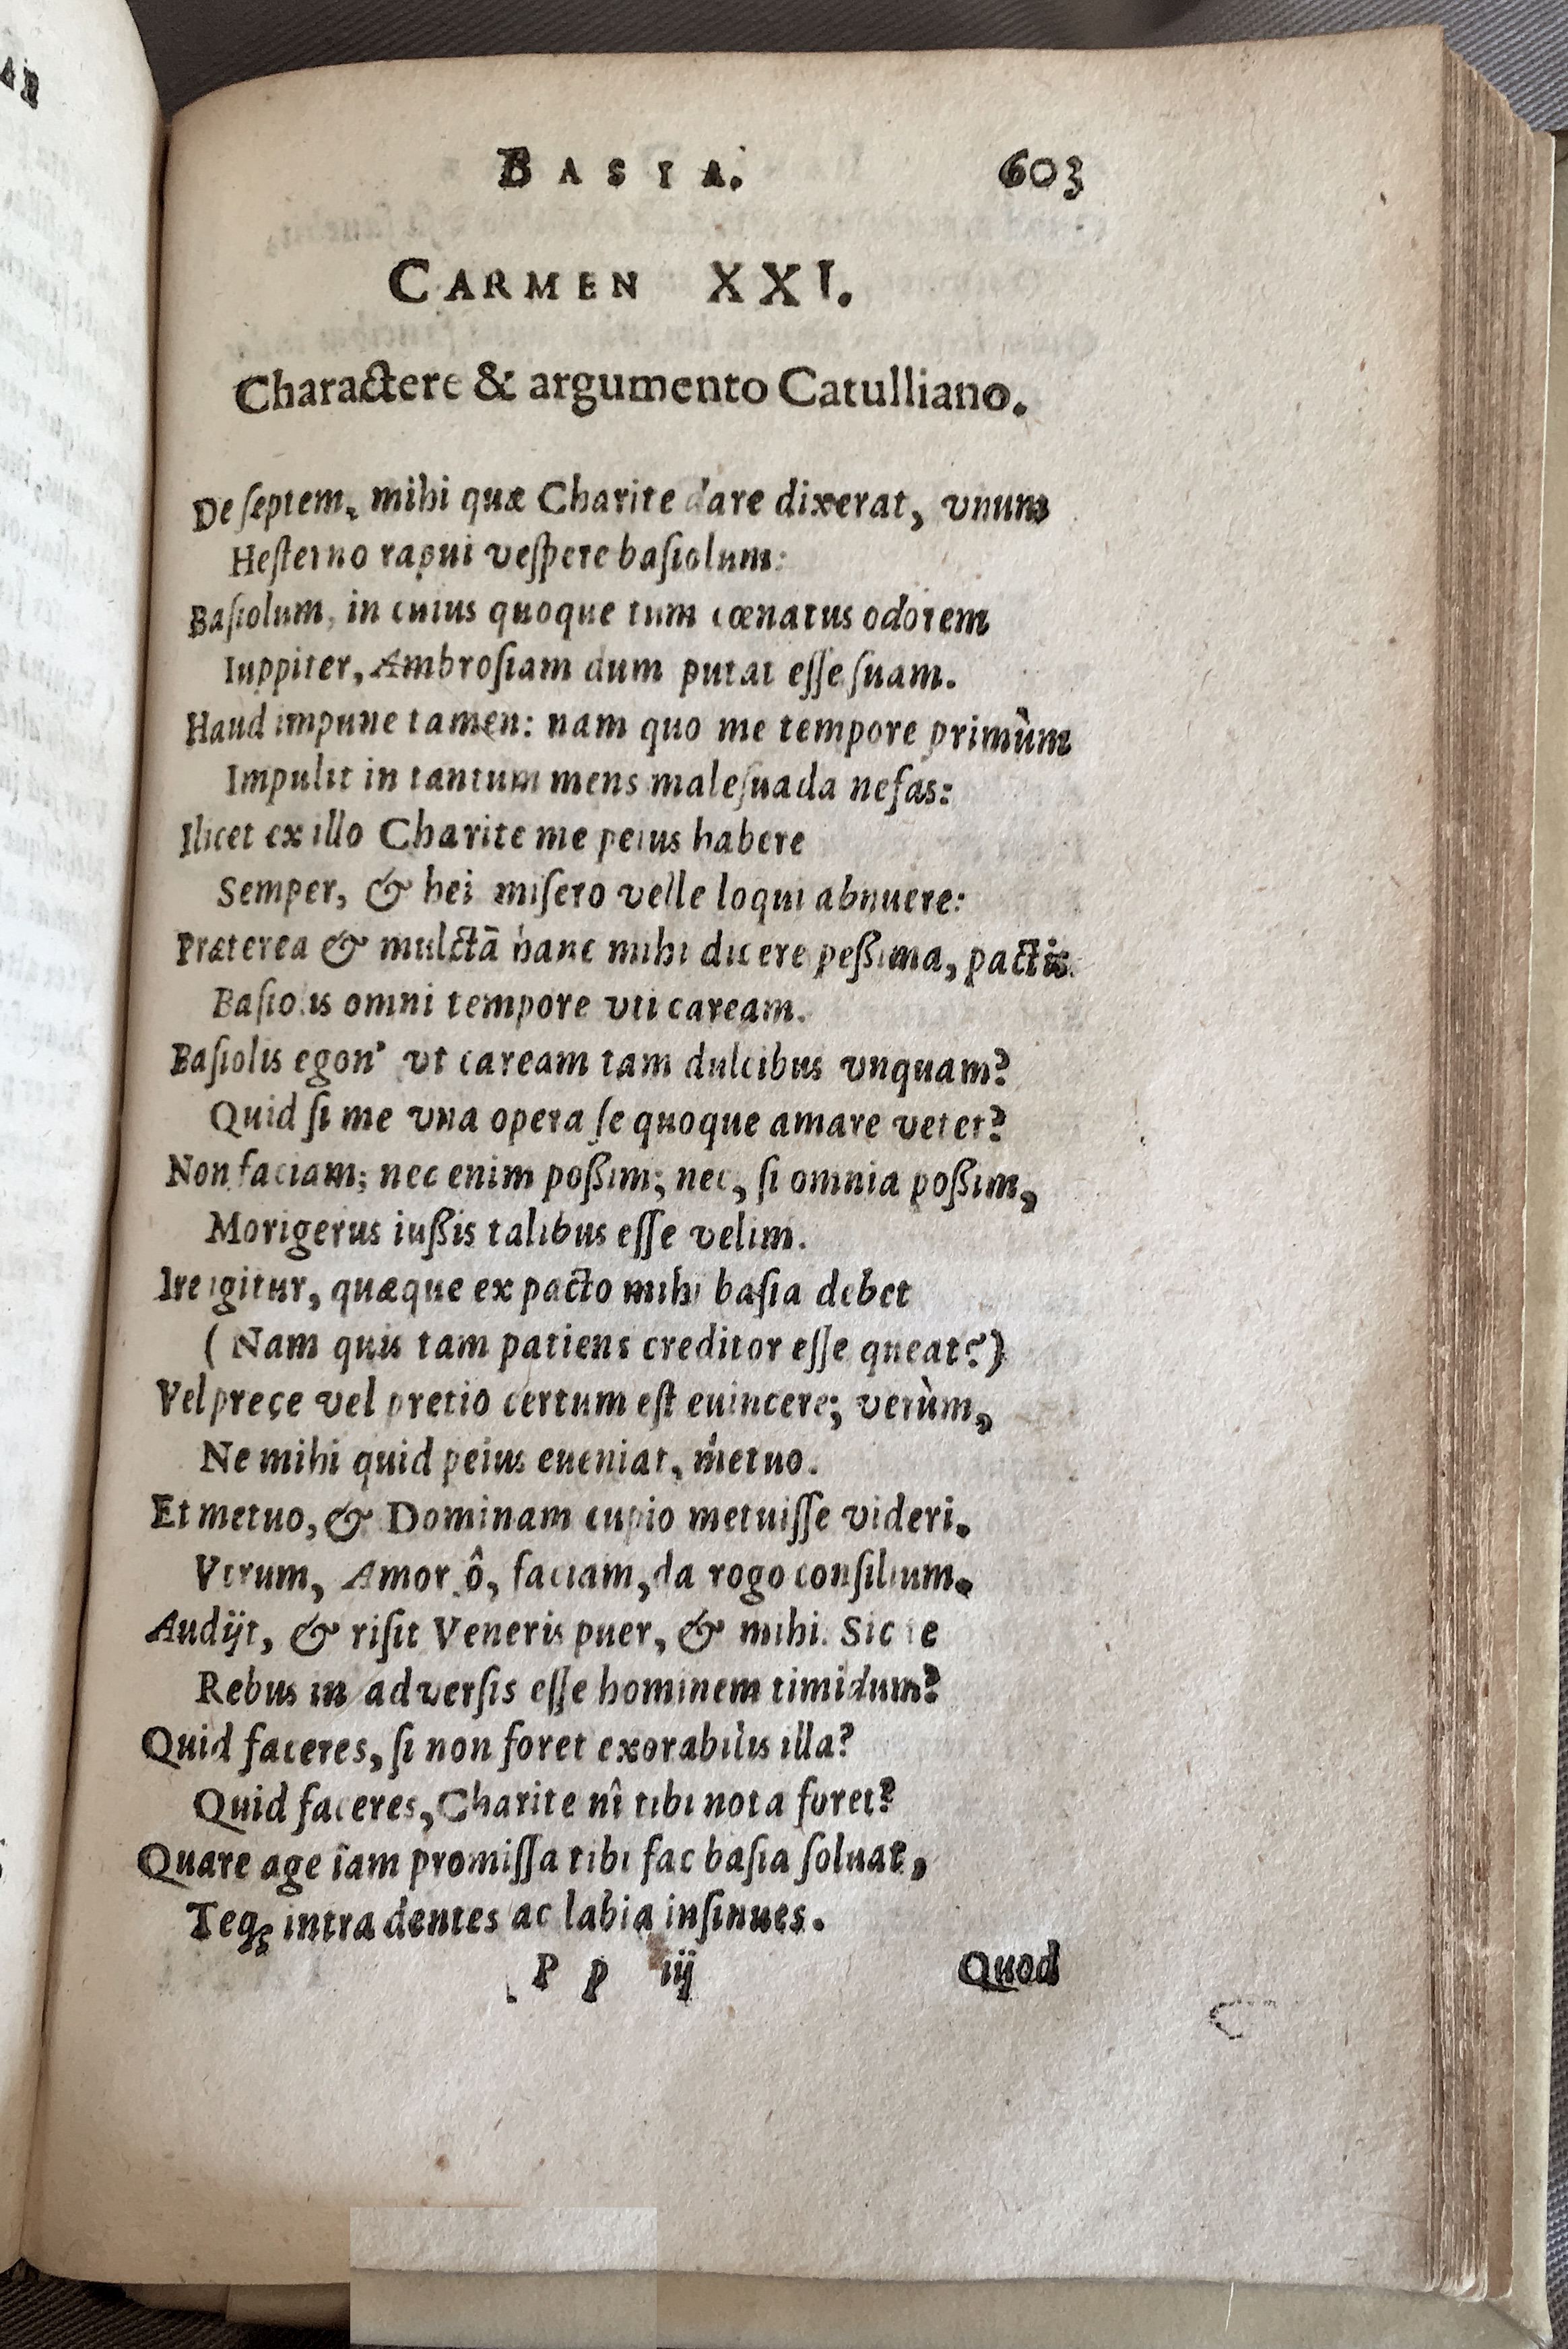 BASIA. 603
CARMEN XXI.
Charactere & argumento Catulliano.
De septem, mihi quæ Charite dare dixerat, vnum
Hesterno rapui vespere basiolum:
Basiolum, in cuius quoque tum cœnatus odorem
Iuppiter, Ambrosiam dum putat esse suam.
Haud impune tamen: nam quo me tempore primùm
Impulit in tantum mens malesuada nefas:
Ilicet ex illo Charite me peius habere
Semper, & hei misero velle loqui abnuere:
Præterea & mulctā hanc mihi dicere peßima, pactis
Basiolis omni tempore vti caream.
Basiolis egon' vt caream tam dulcibus vnquam?
Quid si me vna opera se quoque amare vetet?
Non faciam; nec enim poßim; nec, si omnia poßim,
Morigerus iußis talibus esse velim.
Ire igitur, quæque ex pacto mihi basia debet
(Nam quis tam patiens creditor esse queat?)
Vel prece vel pretio certum est euincere; verùm,
Ne mihi quid peius eueniat, metuo.
Et metuo, & Dominam cupio metuisse videri.
Vtrum, Amor ô, faciam, da rogo consilium.
Audijt, & risit Veneris puer, & mihi. Sic te
Rebus in adversis esse hominem timidum?
Quid faceres, si non foret exorabilis illa?
Quid faceres, Charite nî tibi nota foret?
Quare age iam promissa tibi fac basia soluat,
Teq; intra dentes ac labia insinues.
Pp iij Quod